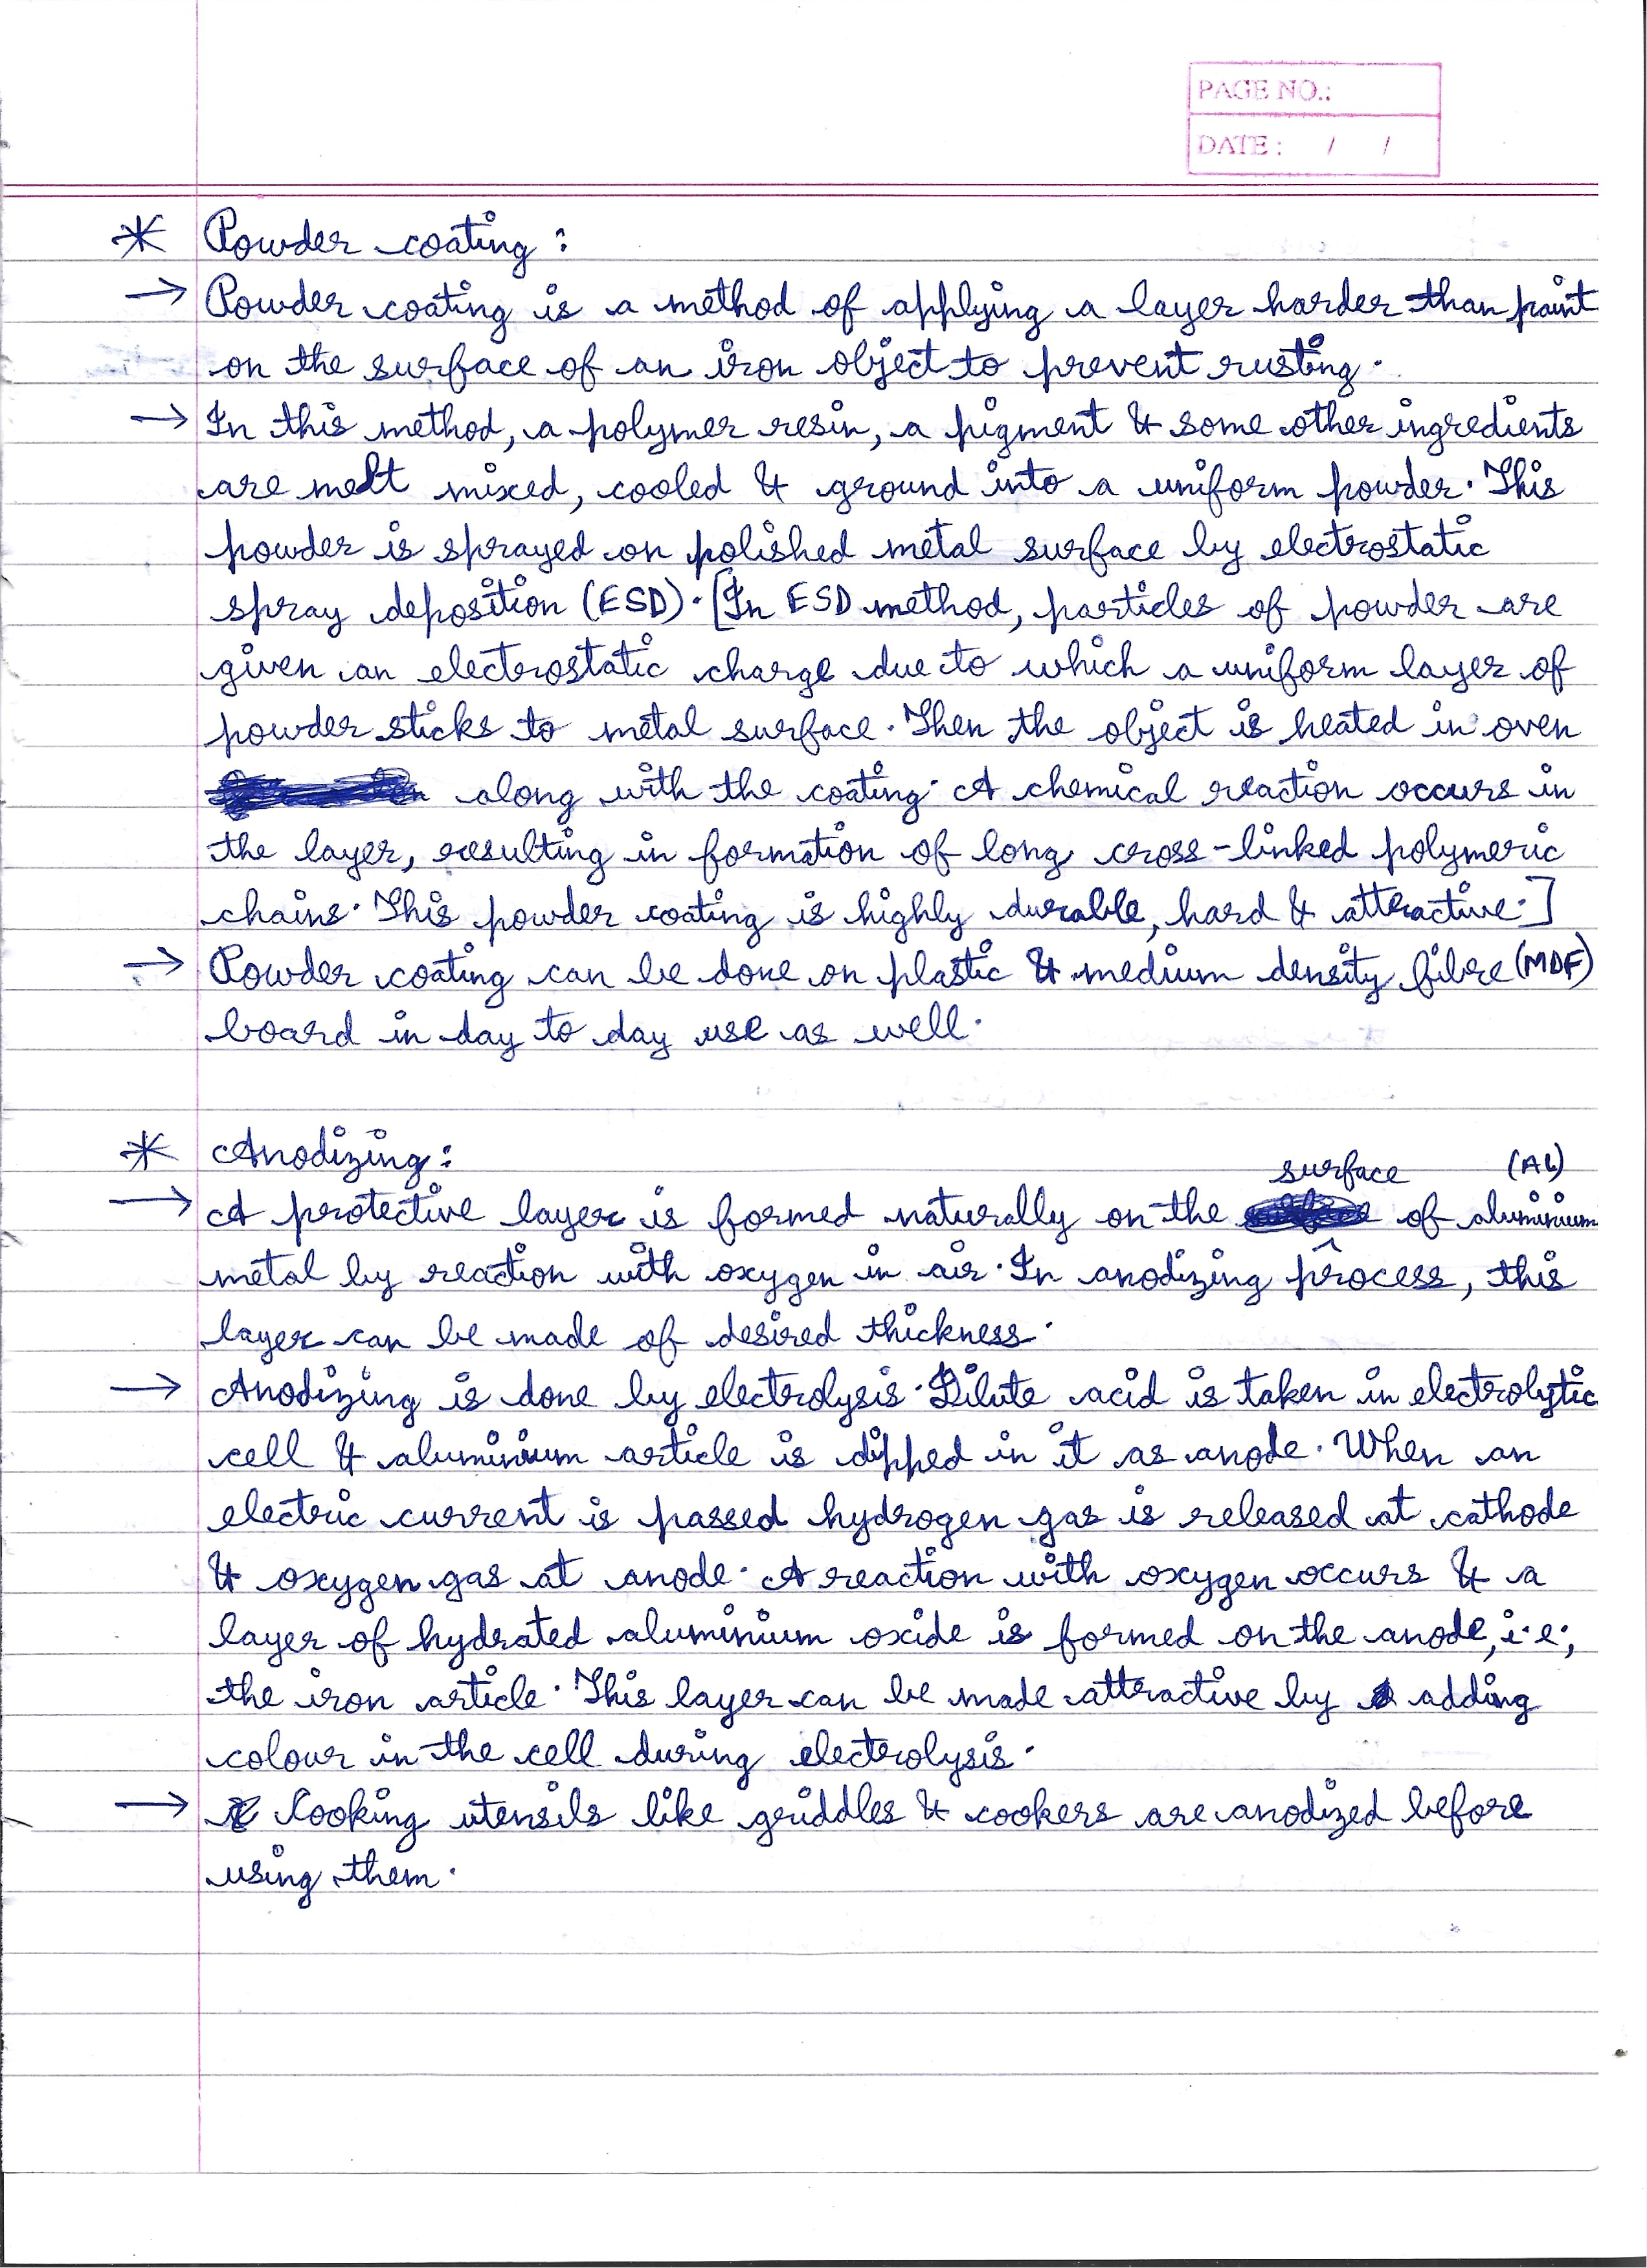 PAGE NO.:
DATE: / /
* Powder coating :
→ Powder coating is a method of applying a layer harder than paint
on the surface of an iron object to prevent rusting.
→ In this method, a polymer resin, a pigment & some other ingredients
are melt mixed, cooled & ground into a uniform powder. This
powder is sprayed on polished metal surface by electrostatic
spray deposition (ESD). [In ESD method, particles of powder are
given an electrostatic charge due to which a uniform layer of
powder sticks to metal surface. Then the object is heated in oven
along with the coating. A chemical reaction occurs in
the layer, resulting in formation of long cross-linked polymeric
chains. This powder coating is highly durable, hard & attractive.]
→ Powder coating can be done on plastic & medium density fibre (MDF)
board in day to day use as well.
* Anodizing :
surface (AL)
→ A protective layer is formed naturally on the of aluminium
metal by reaction with oxygen in air. In anodizing process, this
layer can be made of desired thickness.
→ Anodizing is done by electrolysis. Dilute acid is taken in electrolytic
cell & aluminium article is dipped in it as anode. When an
electric current is passed hydrogen gas is released at cathode
& oxygen gas at anode. A reaction with oxygen occurs & a
layer of hydrated aluminium oxide is formed on the anode, i.e.,
the iron article. This layer can be made attractive by adding
colour in the cell during electrolysis.
→ Cooking utensils like griddles & cookers are anodized before
using them.